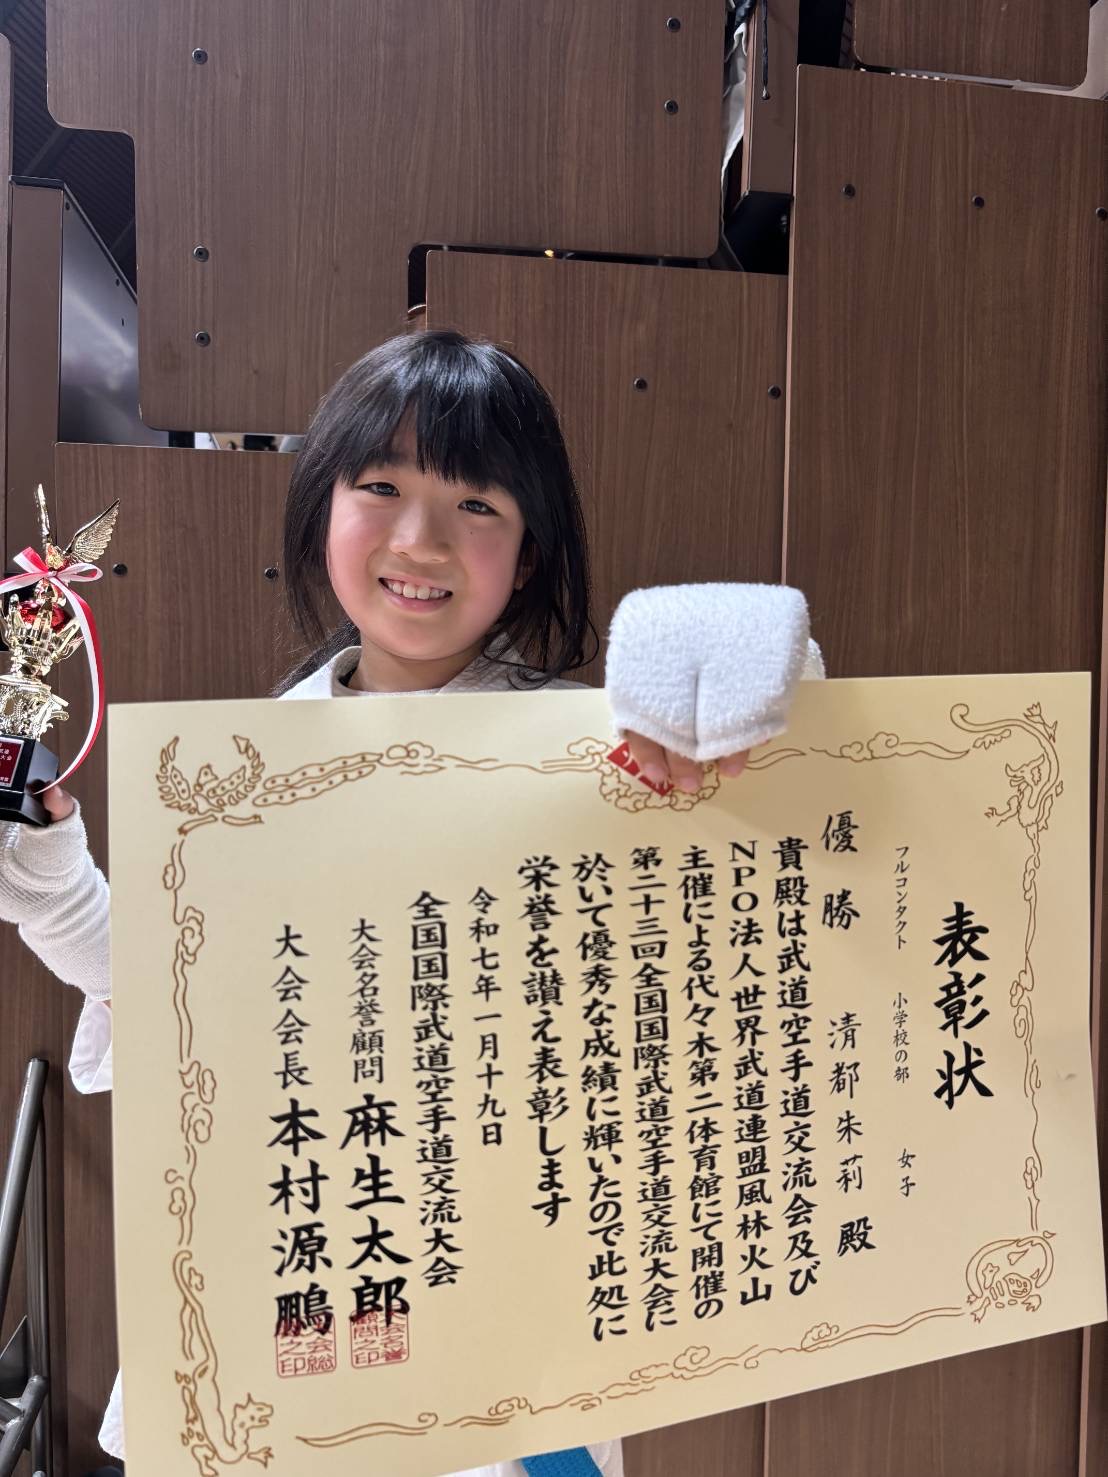 表彰状
フルコンタクト 小学校の部 女子
優勝 清都朱莉 殿
貴殿は武道空手道交流会及び
NPO法人世界武道連盟風林火山
主催による代々木第二体育館にて開催の
第二十三回全国国際武道空手道交流大会に
於いて優秀な成績に輝いたので此処に
栄誉を讃え表彰します
令和七年一月十九日
全国国際武道空手道交流大会
大会名誉顧問 麻生太郎
大会会長 本村源鵬
大会名誉
顧問之印